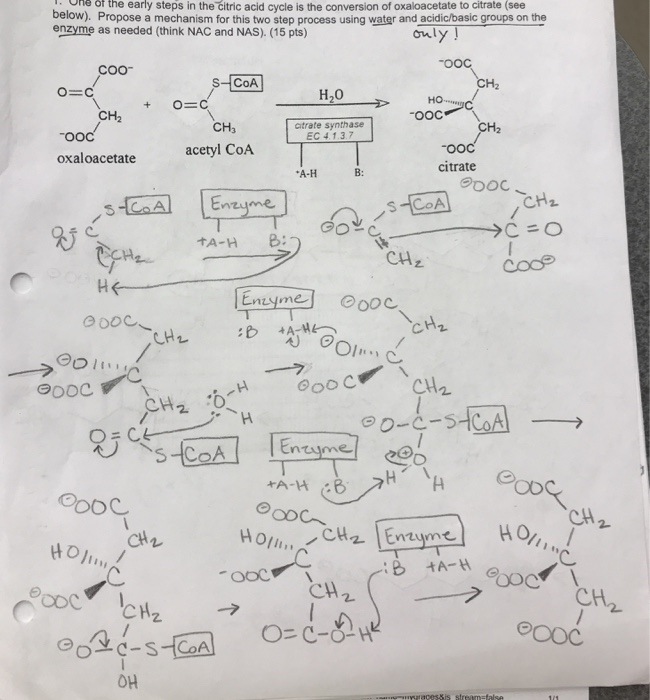 1. One of the early steps in the citric acid cycle is the conversion of oxaloacetate to citrate (see
below). Propose a mechanism for this two step process using water and acidic/basic groups on the
enzyme as needed (think NAC and NAS). (15 pts)
only!
COO-
O=C
CH₂
-OOC
oxaloacetate
+
S-CoA
O=C
CH₃
acetyl CoA
H₂O
citrate synthase
EC 4.1.3.7
+A-H B:
-OOC
CH₂
HO C
-OOC
CH₂
-OOC
citrate
S-CoA
O=C
CH₂
H
Enzyme
+A-H B:
S-CoA
⊖O-C
CH₂
⊖OOC
CH₂
C=O
COO⊖
Enzyme
:B +A-H
⊖OOC
CH₂
⊖O C
⊖OOC
CH₂
O=C
S-CoA
:O-H
H
⊖OOC
CH₂
⊖O C
⊖OOC
CH₂
⊖O-C-S-CoA
⊕O
H H
Enzyme
+A-H :B
⊖OOC
CH₂
HO C
⊖OOC
CH₂
⊖O C-S-CoA
OH
⊖OOC
HO CH₂
C
-OOC
CH₂
O=C-O-H
Enzyme
:B +A-H
⊖OOC
CH₂
HO C
⊖OOC
CH₂
⊖OOC
1/1